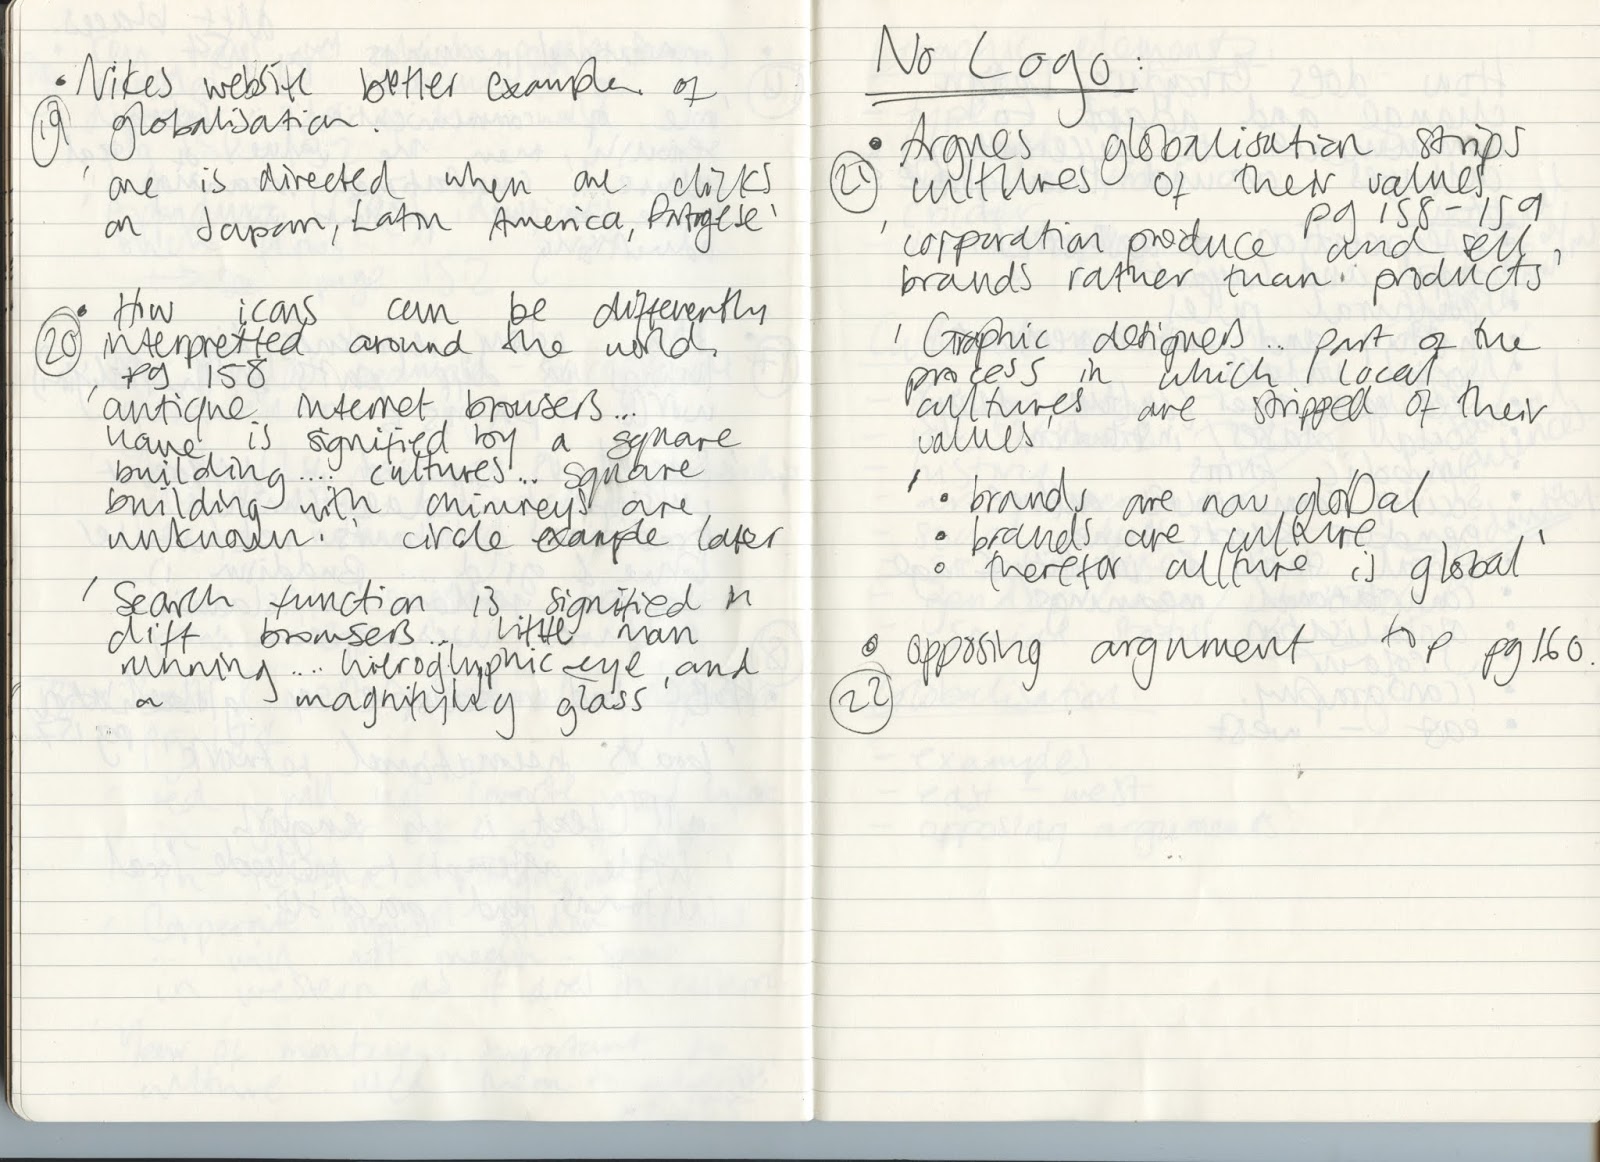 • Nikes website better example of
(19) globalisation.
' one is directed when one clicks
on Japan, Latin America, Portogese'
• How icons can be differently
(20) interpretted around the world.
pg 158
'antique internet browsers...
home is signified by a square
building.... cultures... square
building with chimneys are
unknown.' circle example later
'Search function is signified in
diff browsers... little man
running.... hieroglyphic eye, and
a magnifying glass'
No Logo:
• Argues globalisation strips
(21) cultures of their values
pg 158-159
'corporation produce and sell
brands rather than products'
'Graphic designers.. part of the
process in which local
cultures are stripped of their
values'
' • brands are now global
• brands are culture
• therefor culture is global'
• opposing argument top pg 160.
(22)